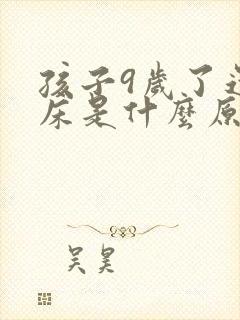 孩子9歲了
床是什麼原
吴昊